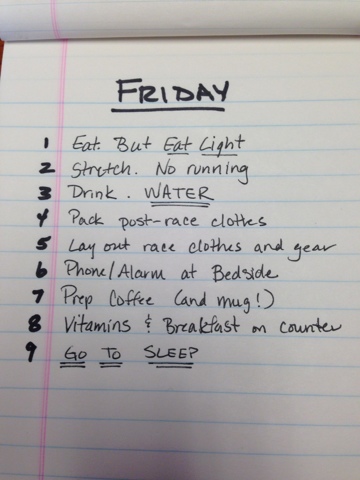 FRIDAY
1 Eat. But Eat Light
2 Stretch. No running
3 Drink. WATER
4 Pack post-race clothes
5 Lay out race clothes and gear
6 Phone/Alarm at Bedside
7 Prep Coffee (and mug!)
8 Vitamins & Breakfast on counter
9 GO TO SLEEP